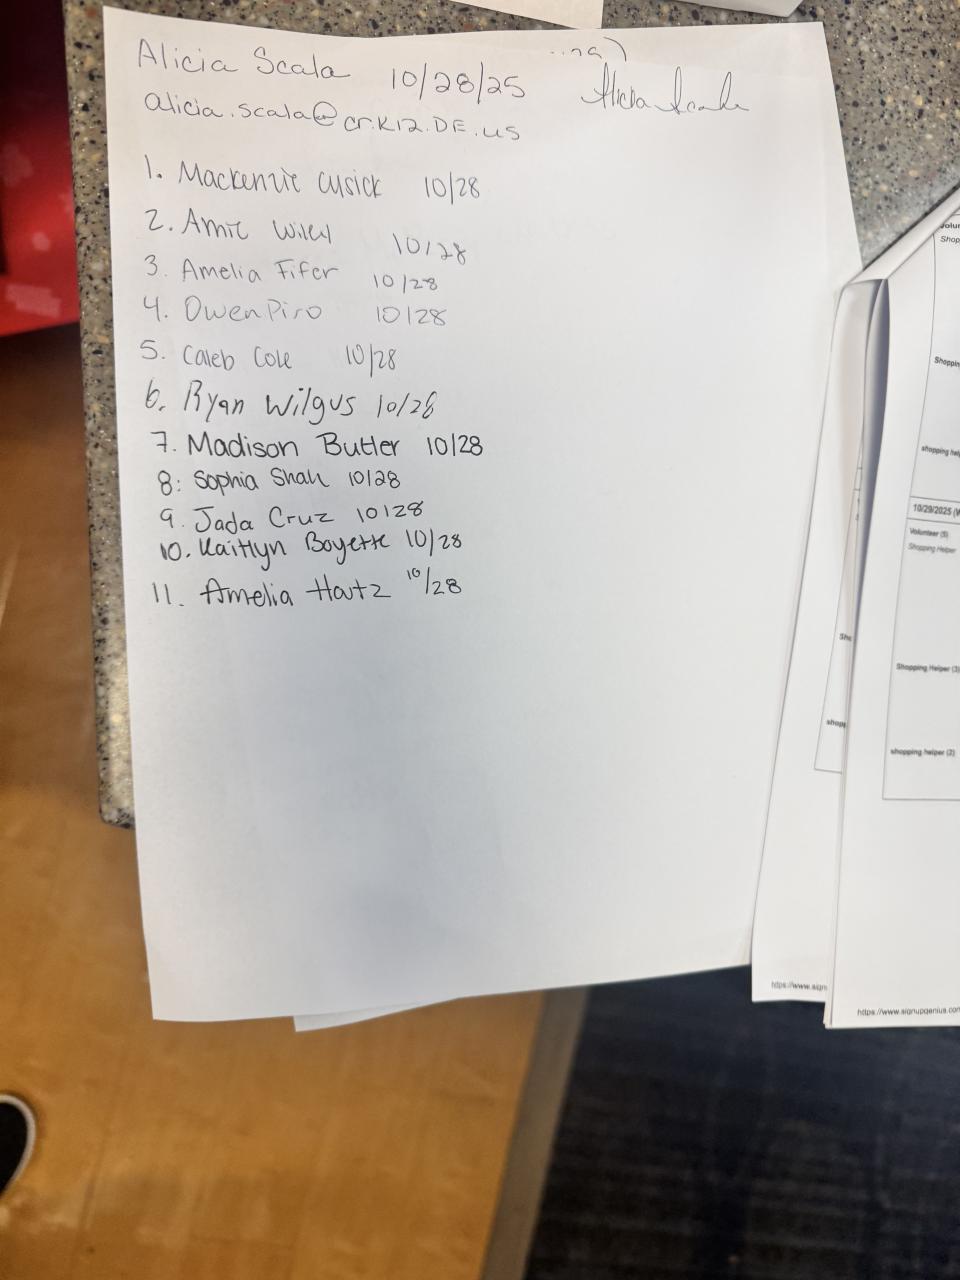 Alicia Scala 10/28/25 Alicia Scala
alicia.scala@cr.K12.DE.us
1. Mackenzie Cusick 10/28
2. Amie Wiley 10/28
3. Amelia Fifer 10/28
4. Owen Piro 10/28
5. Caleb Cole 10/28
6. Ryan Wilgus 10/28
7. Madison Butler 10/28
8: Sophia Shah 10/28
9. Jada Cruz 10/28
10. Kaitlyn Boyette 10/28
11. Amelia Hautz 10/28
Shop
Shoppin
shopping hel
10/29/2025 (W
Volunteer (5)
Shopping Helper
Sho
Shopping Helper (3)
shopp
shopping helper (2)
https://www.sign
https://www.signupgenius.com